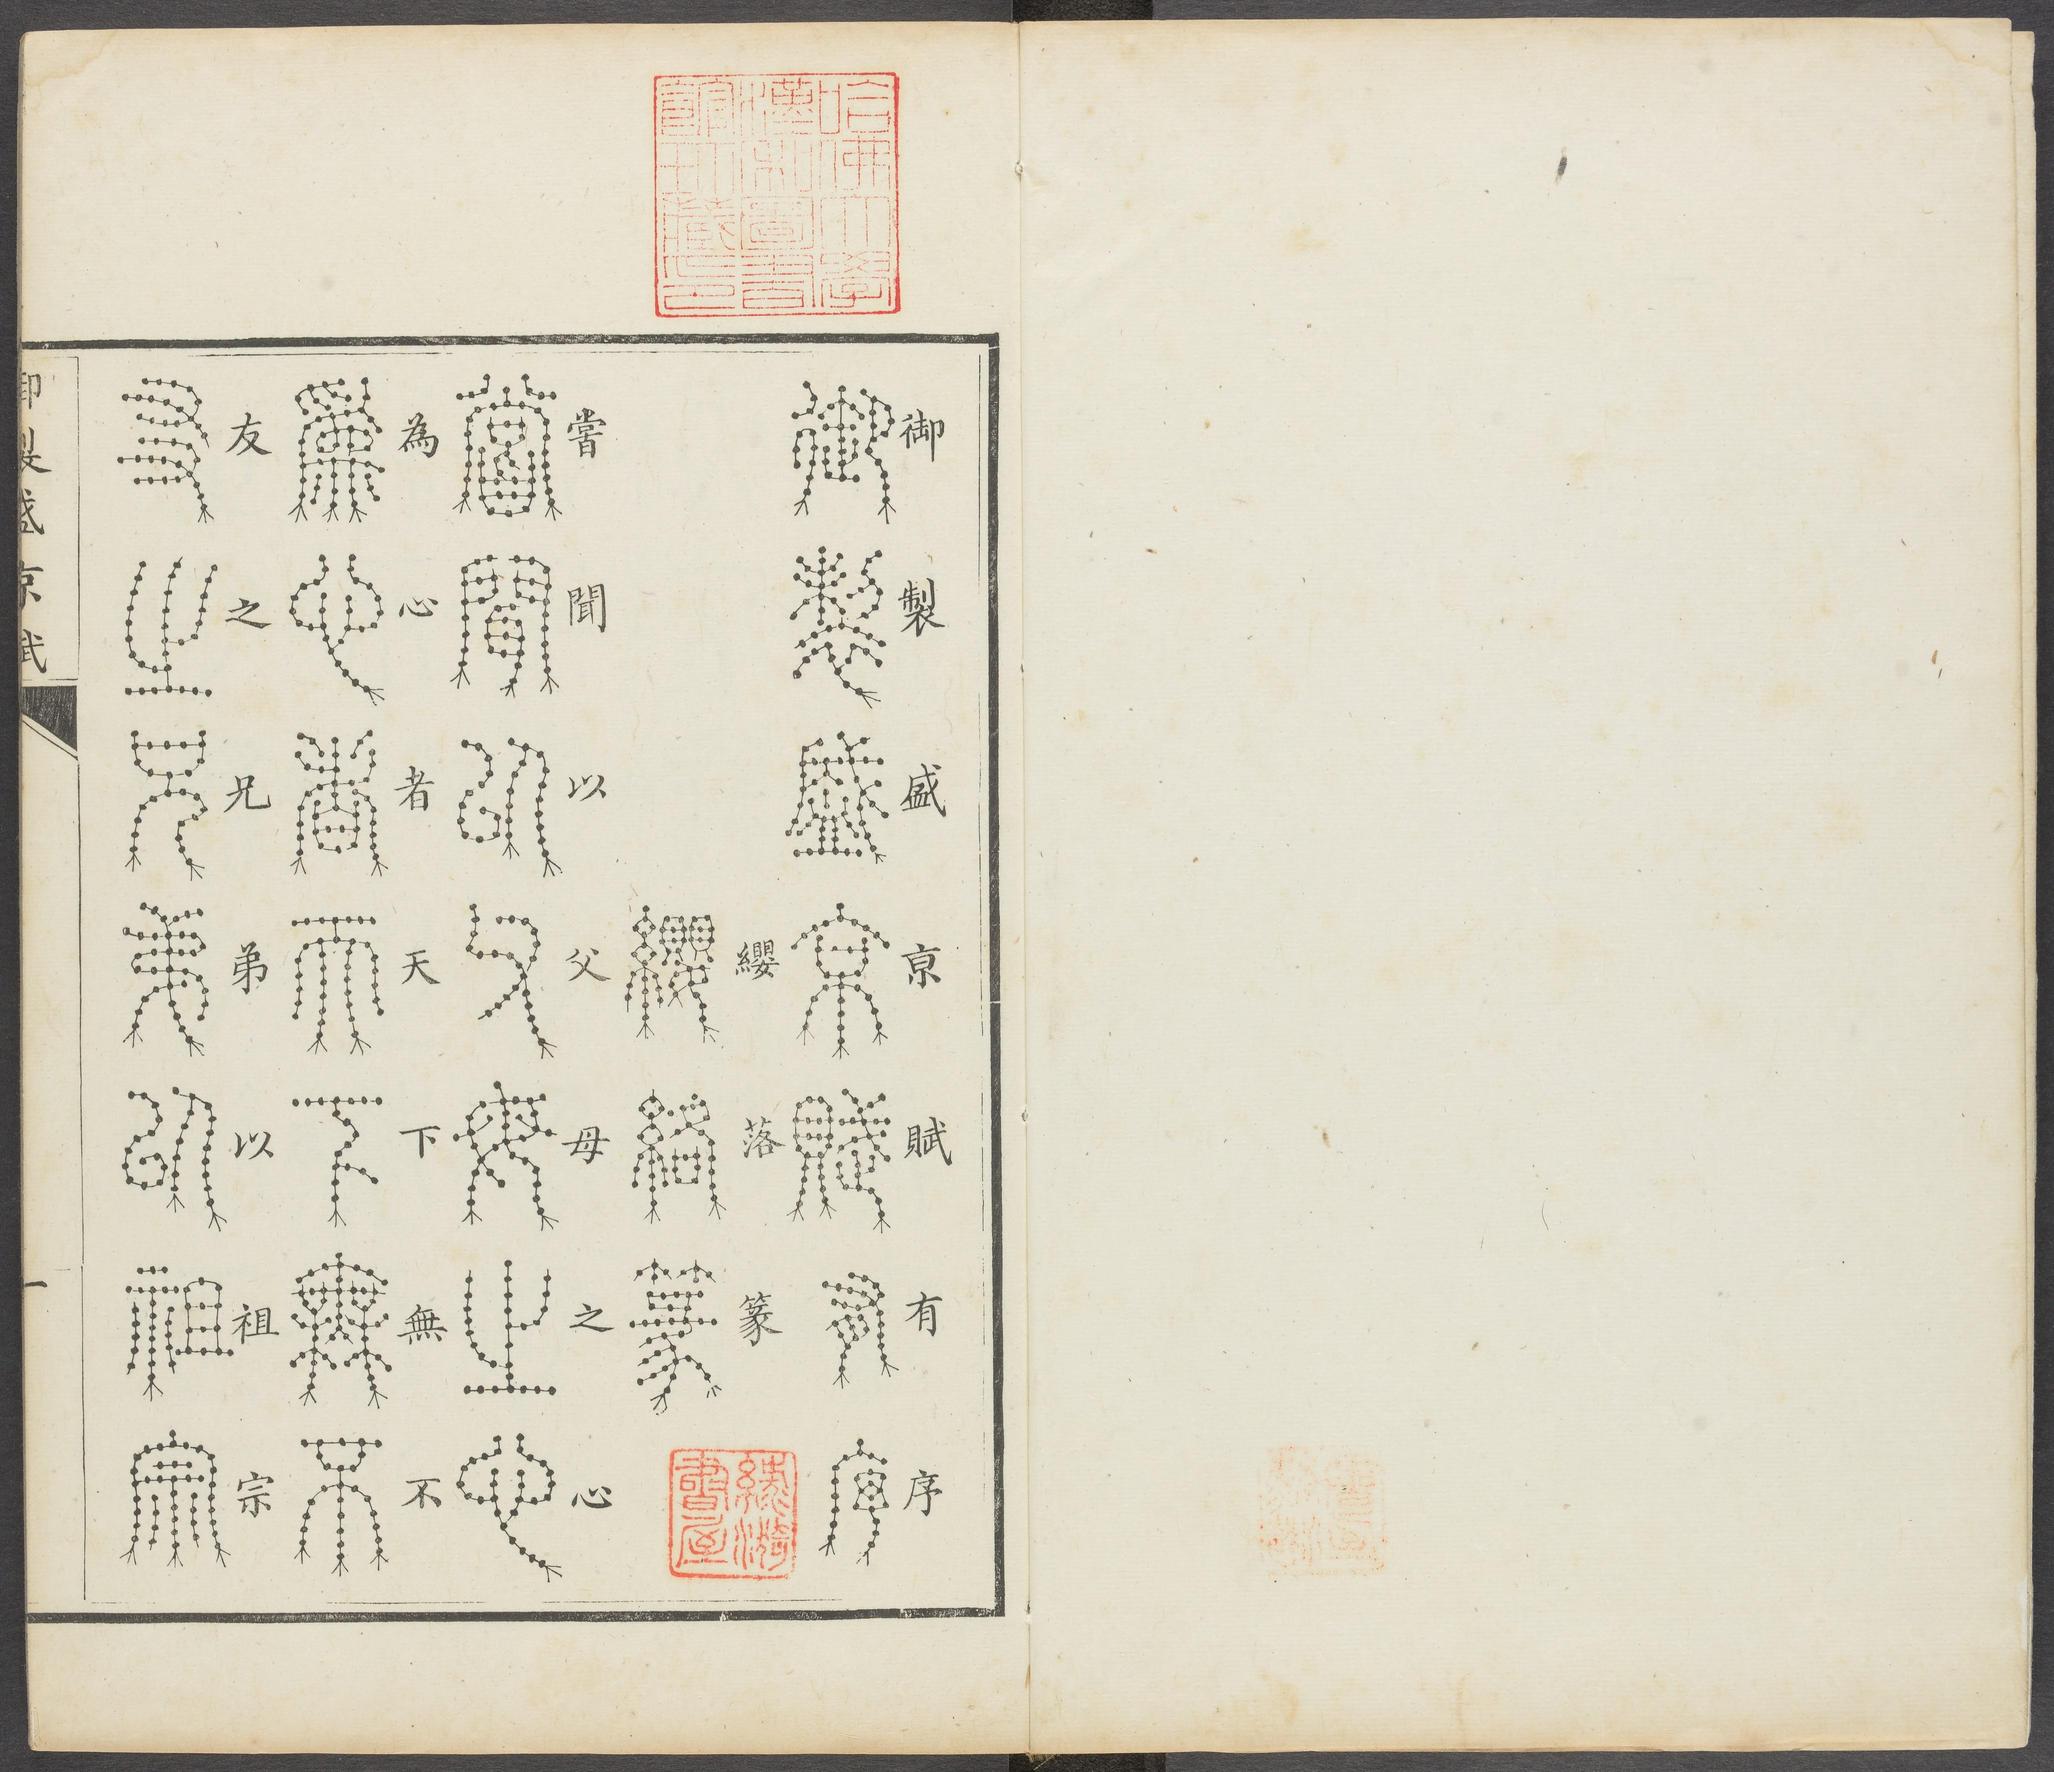 哈佛大學
漢和圖書
館珍藏印
御製盛京賦有序
纓落篆
嘗聞以父母之心
為心者天下無不
友之兄弟以祖宗
御製盛京賦
一